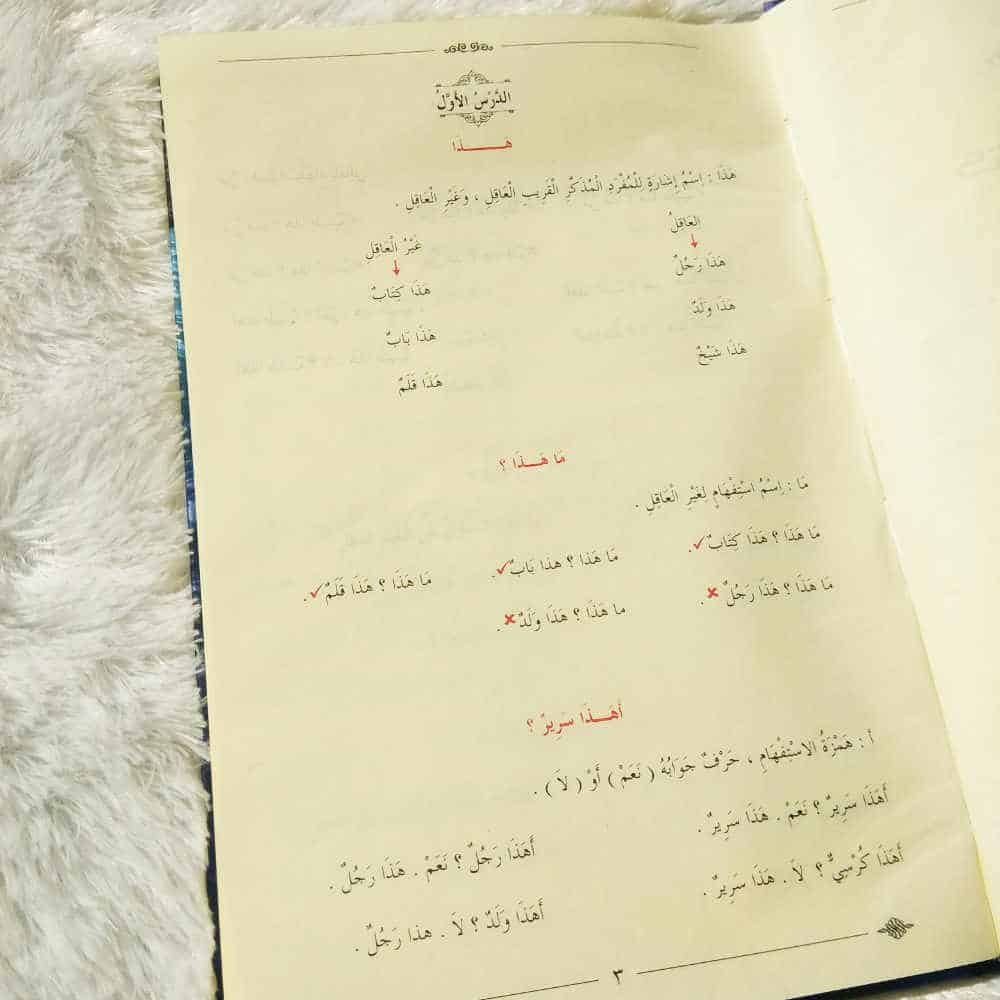 الدَّرْسُ الأَوَّلُ
هَـــــذَا
هَذَا : اِسْمُ إِشَارَةٍ لِلْمُفْرَدِ الْمُذَكَّرِ الْقَرِيبِ الْعَاقِلِ ، وَغَيْرِ الْعَاقِلِ .
العَاقِلُ
غَيْرُ الْعَاقِلِ
هَذَا رَجُلٌ
هَذَا كِتَابٌ
هَذَا وَلَدٌ
هَذَا بَابٌ
هَذَا شَيْخٌ
هَذَا قَلَمٌ
مَا هَــذَا ؟
مَا : اِسْمُ اسْتِفْهَامٍ لِغَيْرِ الْعَاقِلِ .
مَا هَذَا ؟ هَذَا كِتَابٌ ✓. مَا هَذَا ؟ هذا بَابٌ ✓. مَا هَذَا ؟ هَذَا قَلَمٌ ✓.
مَا هَذَا ؟ هَذَا رَجُلٌ ✘. ما هَذَا ؟ هَذَا وَلَدٌ ✘.
أَهَـــذَا سَرِيرٌ ؟
أ : هَمْزَةُ الاسْتِفْهَامِ ، حَرْفٌ جَوَابُهُ ( نَعَمْ ) أَوْ ( لاَ ) .
أَهَذَا سَرِيرٌ ؟ نَعَمْ . هَذَا سَرِيرٌ . أَهَذَا رَجُلٌ ؟ نَعَمْ . هَذَا رَجُلٌ .
أَهَذَا كُرْسِيٌّ ؟ لاَ . هَذَا سَرِيرٌ . أَهَذَا وَلَدٌ ؟ لاَ . هذا رَجُلٌ .
٣